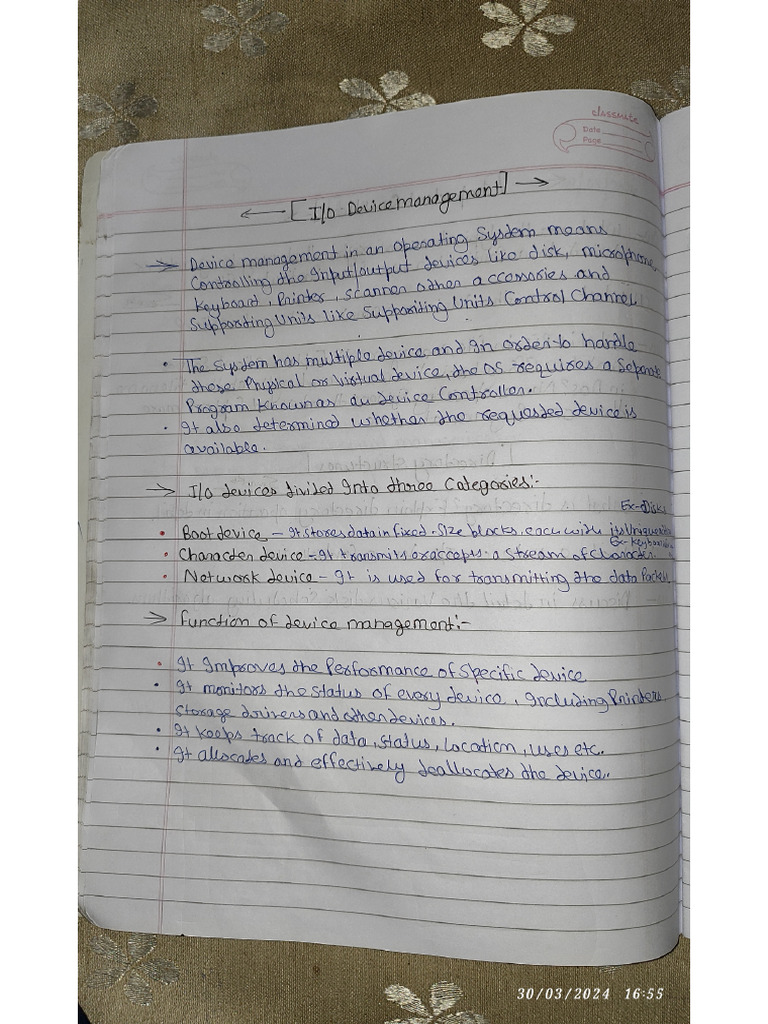 classmate
Date
Page
[I/o Device management]
Device management in an operating System means
Controlling the Input/output devices like disk, microphone,
Keyboard, Printer, scanner other accessories and
Supporting Units like Supporiting Units Control Channel.
The System has multiple device and in order to handle
these Physical or Virtual device, the OS requires a Separate
Program Known as du device Controller.
It also determined whether the requested device is
available.
I/o devices divided Into three Categories:-
Ex-Disk
Boot device - It stores data in fixed-Size blocks, each with its Unique
Ex-Keyboard
Character device - It transmits or accepts a Stream of Character.
Network device - It is used for transmitting the data Packet.
Function of device management:-
It Improves the Performance of Specific device
It monitors the status of every device, Including Printers
Storage drivers and other devices.
It keeps track of data, status, location, uses etc.
It allocates and effectively deallocates the device.
30/03/2024 16:55